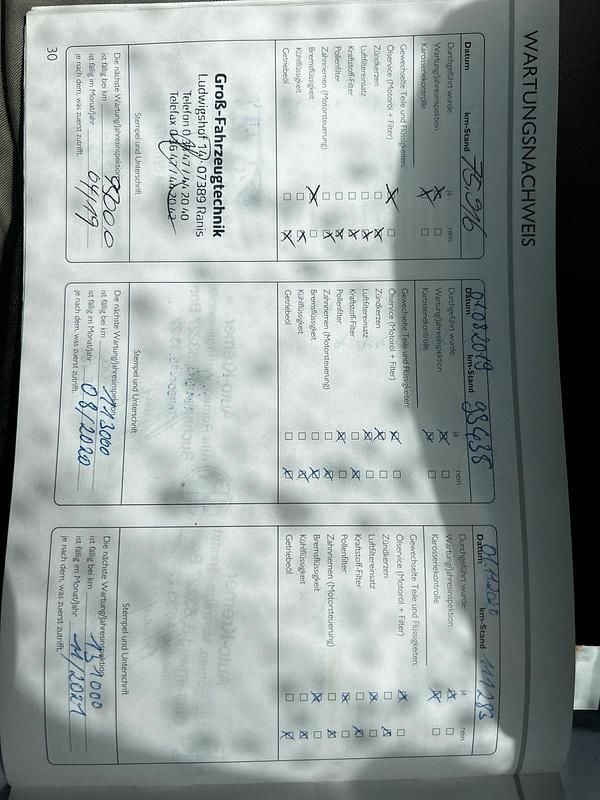 WARTUNGSNACHWEIS
Datum km-Stand 75.916
Durchgeführt wurde: ja nein
Wartung/Jahresinspektion
Karosseriekontrolle
Gewechselte Teile und Flüssigkeiten:
Ölservice (Motoröl + Filter)
Zündkerzen
Luftfiltereinsatz
Kraftstoff-Filter
Pollenfilter
Zahnriemen (Motorsteuerung)
Bremsflüssigkeit
Kühlflüssigkeit
Getriebeöl
Groß-Fahrzeugtechnik
Ludwigshof 14, 07389 Ranis
Telefon 0 36 47 / 44 20 40
Telefax 0 36 47 / 44 20 42
Stempel und Unterschrift
Die nächste Wartung/Jahresinspektion
ist fällig bei km
ist fällig im Monat/Jahr 04/19
je nach dem, was zuerst zutrifft.
Datum km-Stand 95438
Durchgeführt wurde: ja nein
Wartung/Jahresinspektion
Karosseriekontrolle
Gewechselte Teile und Flüssigkeiten:
Ölservice (Motoröl + Filter)
Zündkerzen
Luftfiltereinsatz
Kraftstoff-Filter
Pollenfilter
Zahnriemen (Motorsteuerung)
Bremsflüssigkeit
Kühlflüssigkeit
Getriebeöl
Stempel und Unterschrift
Die nächste Wartung/Jahresinspektion
ist fällig bei km 113000
ist fällig im Monat/Jahr 08/2020
je nach dem, was zuerst zutrifft.
Datum km-Stand 111283
Durchgeführt wurde: ja nein
Wartung/Jahresinspektion
Karosseriekontrolle
Gewechselte Teile und Flüssigkeiten:
Ölservice (Motoröl + Filter)
Zündkerzen
Luftfiltereinsatz
Kraftstoff-Filter
Pollenfilter
Zahnriemen (Motorsteuerung)
Bremsflüssigkeit
Kühlflüssigkeit
Getriebeöl
Stempel und Unterschrift
Die nächste Wartung/Jahresinspektion
ist fällig bei km 131000
ist fällig im Monat/Jahr 11/2021
je nach dem, was zuerst zutrifft.
30